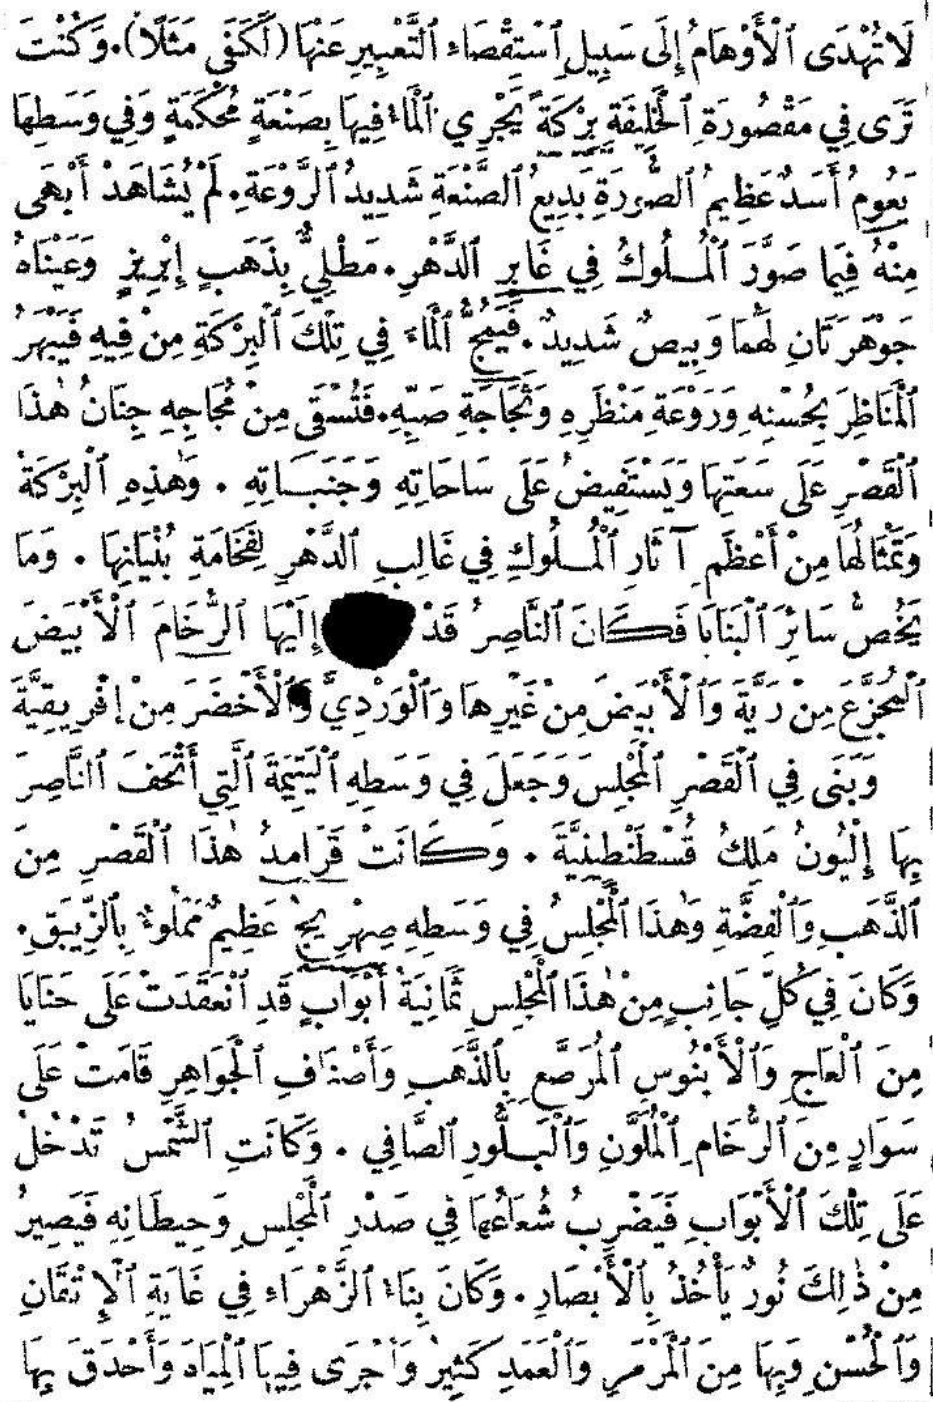 لَا تُهْدَى ٱلْأَوْهَامُ إِلَى سَبِيلِ ٱسْتِقْصَاءِ ٱلتَّعْبِيرِ عَنْهَا (لَكَفَى مَثَلًا). وَكُنْتَ
تَرَى فِي مَقْصُورَةِ ٱلْخَلِيفَةِ بِرْكَةً يَجْرِي ٱلْمَاءُ فِيهَا بِصَنْعَةٍ مُحْكَمَةٍ وَفِي وَسَطِهَا
يَعُومُ أَسَدٌ عَظِيمُ ٱلصُّورَةِ بَدِيعُ ٱلصَّنْعَةِ شَدِيدُ ٱلرَّوْعَةِ. لَمْ يُشَاهَدْ أَبْهَى
مِنْهُ فِيمَا صَوَّرَ ٱلْمُلُوكُ فِي غَابِرِ ٱلدَّهْرِ. مَطْلِيٌّ بِذَهَبٍ إِبْرِيزٍ وَعَيْنَاهُ
جَوْهَرَتَانِ لَهُمَا وَبِيصٌ شَدِيدٌ. فَيَمُجُّ ٱلْمَاءَ فِي تِلْكَ ٱلْبِرْكَةِ مِنْ فِيهِ فَيَبْهَرُ
ٱلْمَنَاظِرَ بِحُسْنِهِ وَرَوْعَةِ مَنْظَرِهِ وَثَجَّاجَةِ صَبِّهِ. فَتُسْقَى مِنْ مُجَاجِهِ جِنَانُ هٰذَا
ٱلْقَصْرِ عَلَى سَعَتِهَا وَيَسْتَفِيضُ عَلَى سَاحَاتِهِ وَجَنَبَاتِهِ. وَهٰذِهِ ٱلْبِرْكَةُ
وَتِمْثَالُهَا مِنْ أَعْظَمِ آثَارِ ٱلْمُلُوكِ فِي غَالِبِ ٱلدَّهْرِ لِفَخَامَةِ بُنْيَانِهَا. وَمَا
يَخُصُّ سَائِرَ ٱلْبَنَايَا فَكَانَ ٱلنَّاصِرُ قَدْ إِلَيْهَا ٱلرُّخَامَ ٱلْأَبْيَضَ
ٱلْمُجَزَّعَ مِنْ رَيَّةَ وَٱلْأَبْيَضَ مِنْ غَيْرِهَا وَٱلْوَرْدِيَّ وَٱلْأَخْضَرَ مِنْ إِفْرِيقِيَّةَ
وَبَنَى فِي ٱلْقَصْرِ ٱلْمَجْلِسَ وَجَعَلَ فِي وَسَطِهِ ٱلْيَتِيمَةَ ٱلَّتِي أَتْحَفَ ٱلنَّاصِرَ
بِهَا إِلْيُونُ مَلِكُ قُسْطَنْطِينِيَّةَ. وَكَانَتْ قَرَامِدُ هٰذَا ٱلْقَصْرِ مِنَ
ٱلذَّهَبِ وَٱلْفِضَّةِ وَهٰذَا ٱلْمَجْلِسُ فِي وَسَطِهِ صِهْرِيجٌ عَظِيمٌ مَمْلُوءٌ بِٱلزِّيبَقِ.
وَكَانَ فِي كُلِّ جَانِبٍ مِنْ هٰذَا ٱلْمَجْلِسِ ثَمَانِيَةُ أَبْوَابٍ قَدِ ٱنْعَقَدَتْ عَلَى حَنَايَا
مِنَ ٱلْعَاجِ وَٱلْأَبْنُوسِ ٱلْمُرَصَّعِ بِٱلذَّهَبِ وَأَصْنَافِ ٱلْجَوَاهِرِ قَامَتْ عَلَى
سَوَارٍ مِنَ ٱلرُّخَامِ ٱلْمُلَوَّنِ وَٱلْبَلُّورِ ٱلصَّافِي. وَكَانَتِ ٱلشَّمْسُ تَدْخُلُ
عَلَى تِلْكَ ٱلْأَبْوَابِ فَيَضْرِبُ شُعَاعُهَا فِي صَدْرِ ٱلْمَجْلِسِ وَحِيطَانِهِ فَيَصِيرُ
مِنْ ذٰلِكَ نُورٌ يَأْخُذُ بِٱلْأَبْصَارِ. وَكَانَ بِنَاءُ ٱلزَّهْرَاءِ فِي غَايَةِ ٱلْإِتْقَانِ
وَٱلْحُسْنِ وَبِهَا مِنَ ٱلْمَرْمَرِ وَٱلْعَمَدِ كَثِيرٌ وَأَجْرَى فِيهَا ٱلْمِيَاهَ وَأَحْدَقَ بِهَا